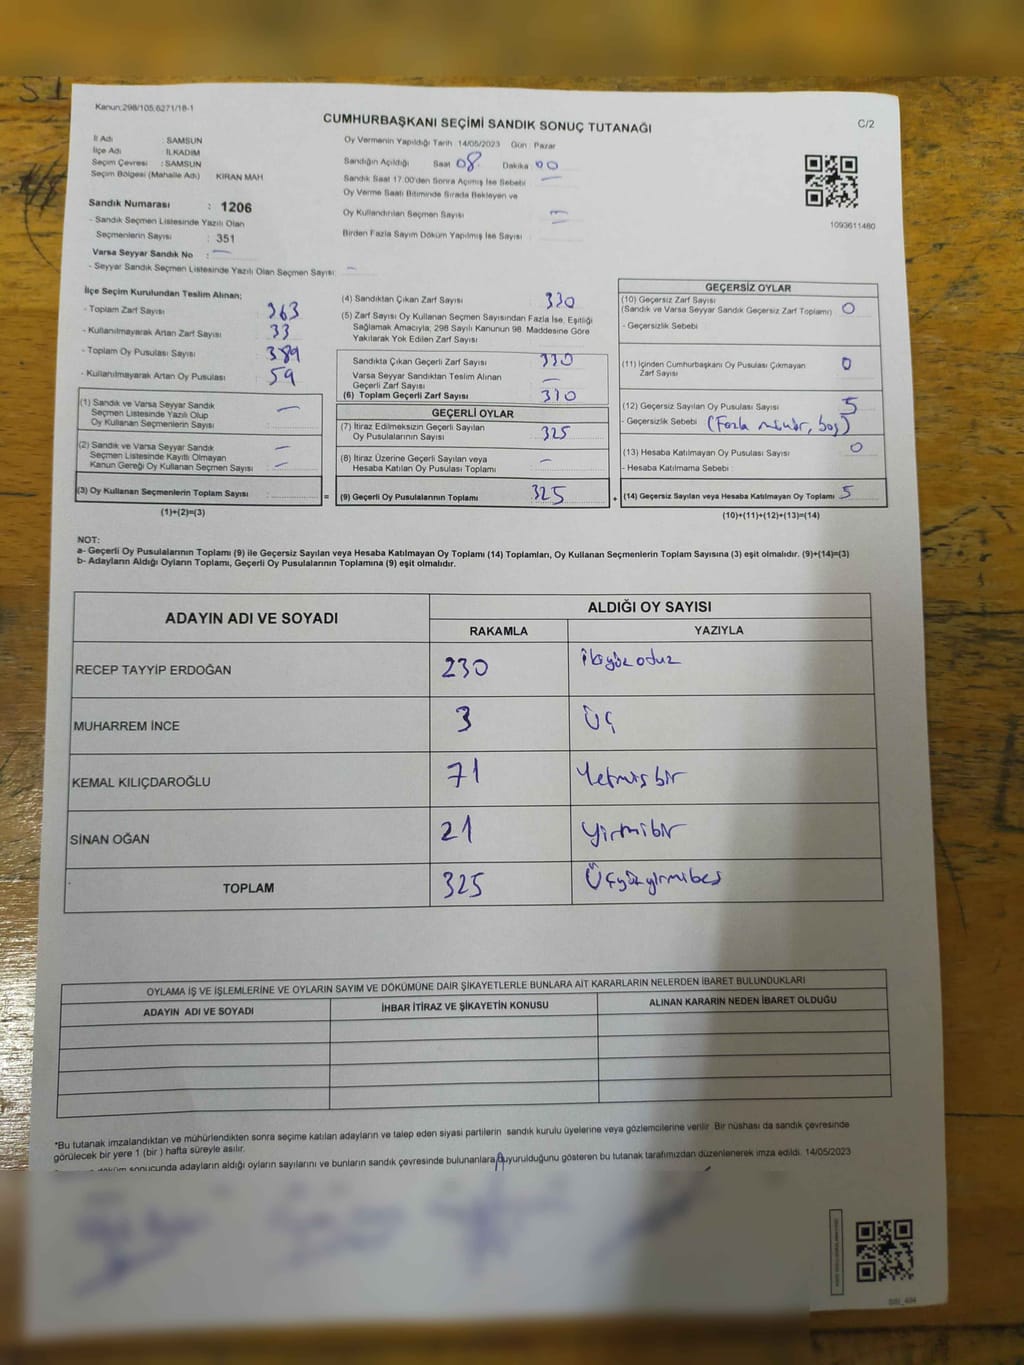 Kanun:298/105,6271/18-1
CUMHURBAŞKANI SEÇİMİ SANDIK SONUÇ TUTANAĞI
C/2
İl Adı : SAMSUN
İlçe Adı : İLKADIM
Seçim Çevresi : SAMSUN
Seçim Bölgesi (Mahalle Adı) KIRAN MAH
Sandık Numarası : 1206
- Sandık Seçmen Listesinde Yazılı Olan
Seçmenlerin Sayısı : 351
Varsa Seyyar Sandık No : —
- Seyyar Sandık Seçmen Listesinde Yazılı Olan Seçmen Sayısı: —
Oy Vermenin Yapıldığı Tarih 14/05/2023 Gün : Pazar
Sandığın Açıldığı Saat 08 Dakika 00
Sandık Saat 17.00'den Sonra Açılmış İse Sebebi —
Oy Verme Saati Bitiminde Sırada Bekleyen ve
Oy Kullandırılan Seçmen Sayısı —
Birden Fazla Sayım Döküm Yapılmış İse Sayısı
1093611460
İlçe Seçim Kurulundan Teslim Alınan;
- Toplam Zarf Sayısı : 363
- Kullanılmayarak Artan Zarf Sayısı : 33
- Toplam Oy Pusulası Sayısı : 389
- Kullanılmayarak Artan Oy Pusulası : 59
(1) Sandık ve Varsa Seyyar Sandık
Seçmen Listesinde Yazılı Olup
Oy Kullanan Seçmenlerin Sayısı : —
(2) Sandık ve Varsa Seyyar Sandık
Seçmen Listesinde Kayıtlı Olmayan
Kanun Gereği Oy Kullanan Seçmen Sayısı : —
(3) Oy Kullanan Seçmenlerin Toplam Sayısı :
(1)+(2)=(3)
(4) Sandıktan Çıkan Zarf Sayısı 330
(5) Zarf Sayısı Oy Kullanan Seçmen Sayısından Fazla İse, Eşitliği
Sağlamak Amacıyla; 298 Sayılı Kanunun 98. Maddesine Göre
Yakılarak Yok Edilen Zarf Sayısı
Sandıkta Çıkan Geçerli Zarf Sayısı 330
Varsa Seyyar Sandıktan Teslim Alınan
Geçerli Zarf Sayısı —
(6) Toplam Geçerli Zarf Sayısı 330
GEÇERLİ OYLAR
(7) İtiraz Edilmeksizin Geçerli Sayılan
Oy Pusulalarının Sayısı 325
(8) İtiraz Üzerine Geçerli Sayılan veya
Hesaba Katılan Oy Pusulası Toplamı —
= (9) Geçerli Oy Pusulalarının Toplamı 325 +
GEÇERSİZ OYLAR
(10) Geçersiz Zarf Sayısı
(Sandık ve Varsa Seyyar Sandık Geçersiz Zarf Toplamı) 0
- Geçersizlik Sebebi
(11) İçinden Cumhurbaşkanı Oy Pusulası Çıkmayan
Zarf Sayısı 0
(12) Geçersiz Sayılan Oy Pusulası Sayısı 5
- Geçersizlik Sebebi (Fazla mühür, boş)
(13) Hesaba Katılmayan Oy Pusulası Sayısı 0
- Hesaba Katılmama Sebebi
(14) Geçersiz Sayılan veya Hesaba Katılmayan Oy Toplamı 5
(10)+(11)+(12)+(13)=(14)
NOT:
a- Geçerli Oy Pusulalarının Toplamı (9) ile Geçersiz Sayılan veya Hesaba Katılmayan Oy Toplamı (14) Toplamları, Oy Kullanan Seçmenlerin Toplam Sayısına (3) eşit olmalıdır. (9)+(14)=(3)
b- Adayların Aldığı Oyların Toplamı, Geçerli Oy Pusulalarının Toplamına (9) eşit olmalıdır.
ADAYIN ADI VE SOYADI ALDIĞI OY SAYISI
RAKAMLA YAZIYLA
RECEP TAYYİP ERDOĞAN 230 ikiyüzotuz
MUHARREM İNCE 3 Üç
KEMAL KILIÇDAROĞLU 71 Yetmişbir
SİNAN OĞAN 21 Yirmibir
TOPLAM 325 Üçyüzyirmibeş
OYLAMA İŞ VE İŞLEMLERİNE VE OYLARIN SAYIM VE DÖKÜMÜNE DAİR ŞİKAYETLERLE BUNLARA AİT KARARLARIN NELERDEN İBARET BULUNDUKLARI
ADAYIN ADI VE SOYADI İHBAR İTİRAZ VE ŞİKAYETİN KONUSU ALINAN KARARIN NEDEN İBARET OLDUĞU
*Bu tutanak imzalandıktan ve mühürlendikten sonra seçime katılan adayların ve talep eden siyasi partilerin sandık kurulu üyelerine veya gözlemcilerine verilir. Bir nüshası da sandık çevresinde
görülecek bir yere 1 (bir ) hafta süreyle asılır.
döküm sonucunda adayların aldığı oyların sayılarını ve bunların sandık çevresinde bulunanlara duyurulduğunu gösteren bu tutanak tarafımızdan düzenlenerek imza edildi. 14/05/2023